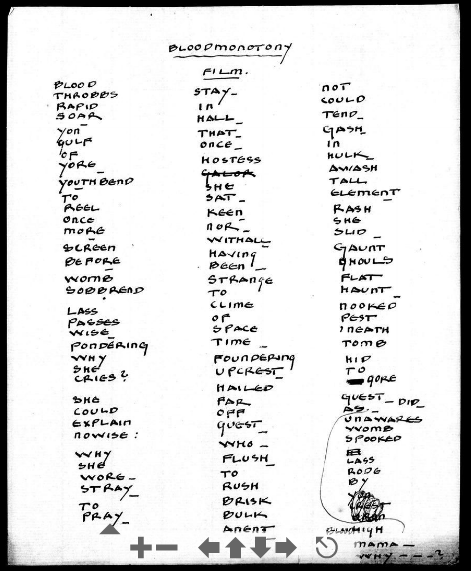 BLOODMONOTONY
FILM.
BLOOD
THROBBS
RAPID
SOAR_
yon
GULF
OF
YORE_
YOUTHBEND
TO
REEL
ONCE
MORE
SCREEN
BEFORE
WOMB
SOBBREND
LASS
PASSES
WISE_
PONDERING
WHY
SHE
CRIES?
SHE
COULD
EXPLAIN
NOWISE:
WHY
SHE
WORE_
STRAY_
TO
PRAY_
STAY_
IN
HALL_
THAT_
ONCE_
HOSTESS
GALOR
SHE
SAT_
KEEN
NOR_
WITHALL
HAVING
BEEN_
STRANGE
TO
CLIME
OF
SPACE
TIME_
FOUNDERING
UPCREST_
HAILED
FAR
OFF
GUEST_
WHO_
FLUSH_
TO
RUSH
BRISK
BULK
ANENT
NOT
COULD
TEND_
GASH_
IN
HULK_
AWASH
TALL
ELEMENT
RASH
SHE
SLID_
GAUNT
GHOULS
FLAT
HAUNT_
NOOKED
PEST
'NEATH
TOMB
HID
TO
GORE
GUEST_DID_
AS_
UNAWARES
WOMB
SPOOKED
LASS
RODE
BY
HIGH
MAMA_
WHY---?